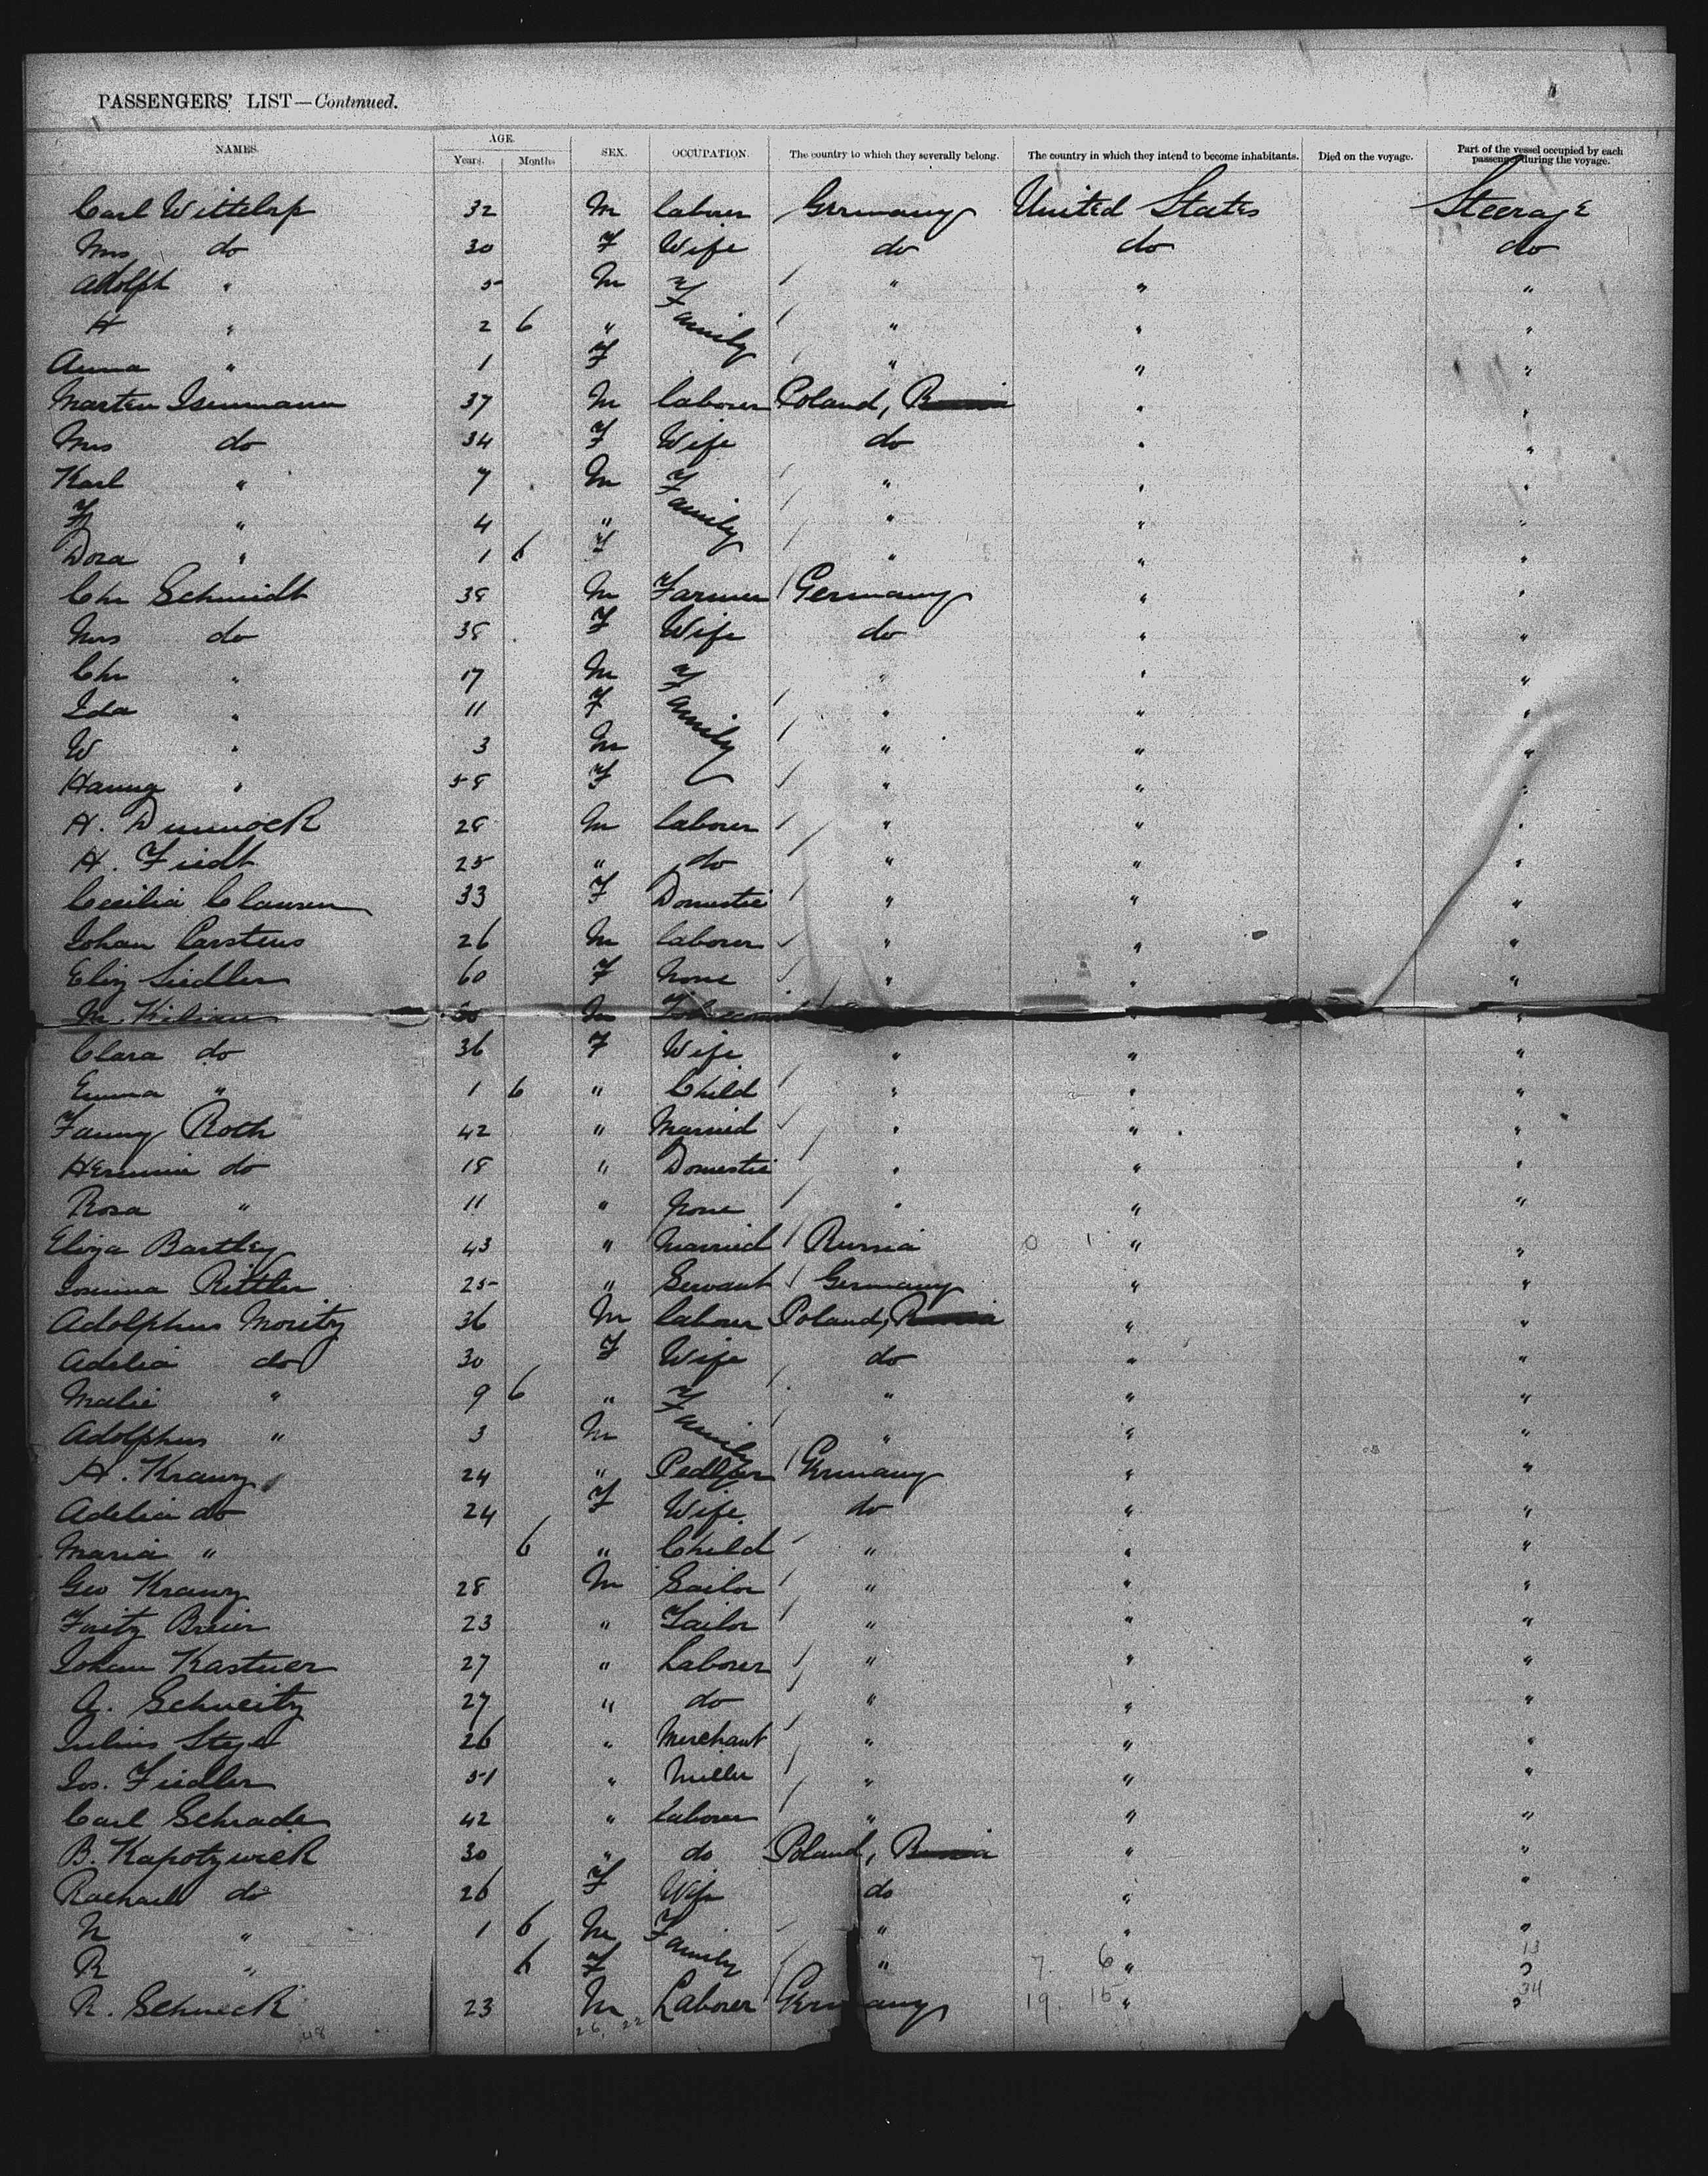 PASSENGERS' LIST—Continued.
NAMES. AGE. Years. Months SEX. OCCUPATION. The country to which they severally belong. The country in which they intend to become inhabitants. Died on the voyage. Part of the vessel occupied by each passenger during the voyage.
Carl 32 M laborer Germany United States Steerage
Mrs do 30 F Wife do do do
Adolph " 5 M Family " " "
H " 2 6 " " " "
Anna " 1 F " " "
Marten Isenmann 37 M laborer Poland, Russia " "
Mrs do 34 F Wife do " "
Karl " 7 M Family " " "
F " 4 " " " "
Dora " 1 6 F " " "
Chr Schmidt 38 M Farmer Germany " "
Mrs do 38 F Wife do " "
Chr " 17 M Family " " "
Ida " 11 F " " "
W " 3 M " " "
Hanna " 58 F " " "
H. 28 M laborer " " "
H. 25 " do " " "
Cecilia Clausen 33 F Domestic " " "
Johan Carstens 26 M laborer " " "
Eliz Siedler 60 F None " " "
M Kilian M " "
Clara do 36 F Wife " " "
Emma " 1 6 " Child " " "
Fanny Roth 42 " Married " " "
Hermina do 18 " Domestic " " "
Rosa " 11 " None " " "
Eliza Bartley 43 " Married Russia 0 1 " "
Rittler 25 " Servant Germany " "
Adolphus Moritz 36 M laborer Poland, Russia " "
Adelia do 30 F Wife do " "
Malie " 9 6 " Family " " "
Adolphus " 3 M " " "
H. Kranz 24 " Pedler Germany " "
Adelia do 24 F Wife do " "
Maria " 6 " Child " " "
Geo Kranz 28 M Sailor " " "
Fritz Breier 23 " Tailor " " "
Johan Kastner 27 " Laborer " " "
A. Schweitz 27 " do " " "
Julius 26 " Merchant " " "
Jos. Fiedler 51 " Miller " " "
Carl Schrader 42 " Laborer " " "
B. Kapotzwick 30 " do Poland, Russia " "
Rachael do 26 F Wife do " "
N " 1 6 M Family " " "
R " 6 F " 7 6 " 13 "
R. Schneck 23 M Laborer Germany 19 15 " 34 "
48 26 22